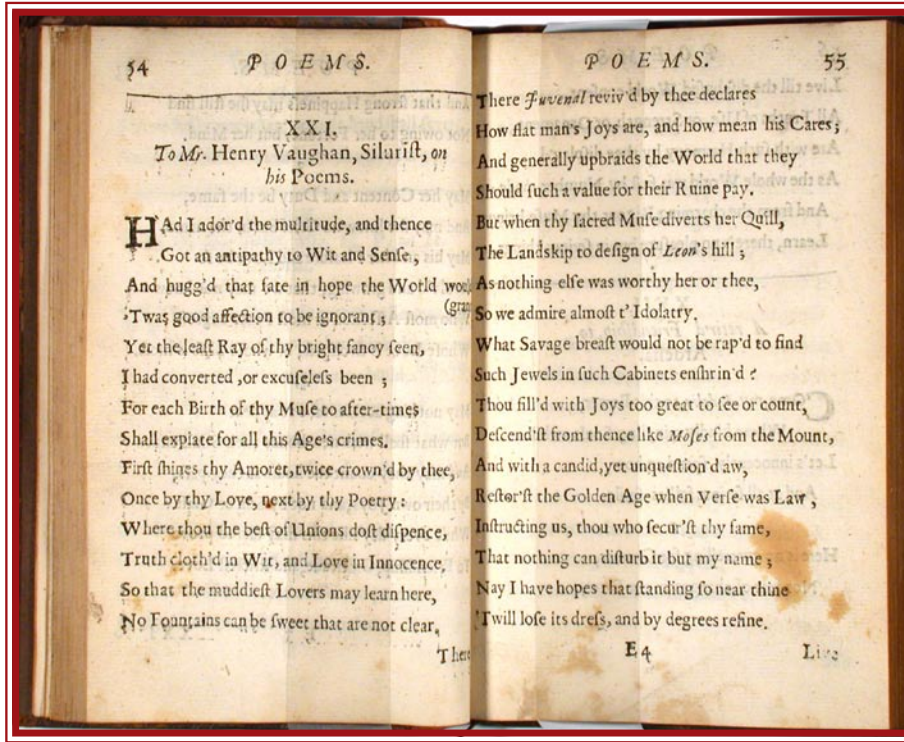 54 POEMS.
XXI.
To Mr. Henry Vaughan, Siluriſt, on
his Poems.
HAd I ador'd the multitude, and thence
Got an antipathy to Wit and Senſe,
And hugg'd that fate in hope the World
'Twas good affection to be ignorant;
Yet the leaſt Ray of thy bright fancy ſeen,
I had converted, or excuſeleſs been;
For each Birth of thy Muſe to after-times
Shall expiate for all this Age's crimes.
Firſt ſhines thy Amoret, twice crown'd by thee,
Once by thy Love, next by thy Poetry:
Where thou the beſt of Unions doſt diſpence,
Truth cloth'd in Wit, and Love in Innocence,
So that the muddieſt Lovers may learn here,
No Fountains can be ſweet that are not clear.
There
POEMS. 55
There Juvenal reviv'd by thee declares
How flat man's Joys are, and how mean his Cares;
And generally upbraids the World that they
Should ſuch a value for their Ruine pay.
But when thy ſacred Muſe diverts her Quill,
The Landskip to deſign of Leon's hill;
As nothing elſe was worthy her or thee,
So we admire almoſt t' Idolatry.
What Savage breaſt would not be rap'd to find
Such Jewels in ſuch Cabinets enſhrin'd?
Thou fill'd with Joys too great to ſee or count,
Deſcend'ſt from thence like Moſes from the Mount,
And with a candid, yet unqueſtion'd aw,
Reſtor'ſt the Golden Age when Verſe was Law;
Inſtructing us, thou who ſecur'ſt thy fame,
That nothing can diſturb it but my name;
Nay I have hopes that ſtanding ſo near thine
'Twill loſe its dreſs, and by degrees refine.
E4 Live